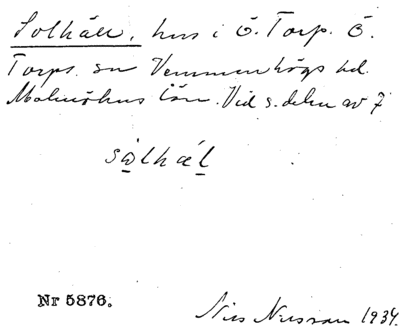 Solhäll, hus i Ö. Torp. Ö.
Torps sn Vemmenhögs hd.
Malmöhus län. Vid s. delen av 7
sɷlhæ̀l
Nr 5876.
Nils Nilsson 1934.